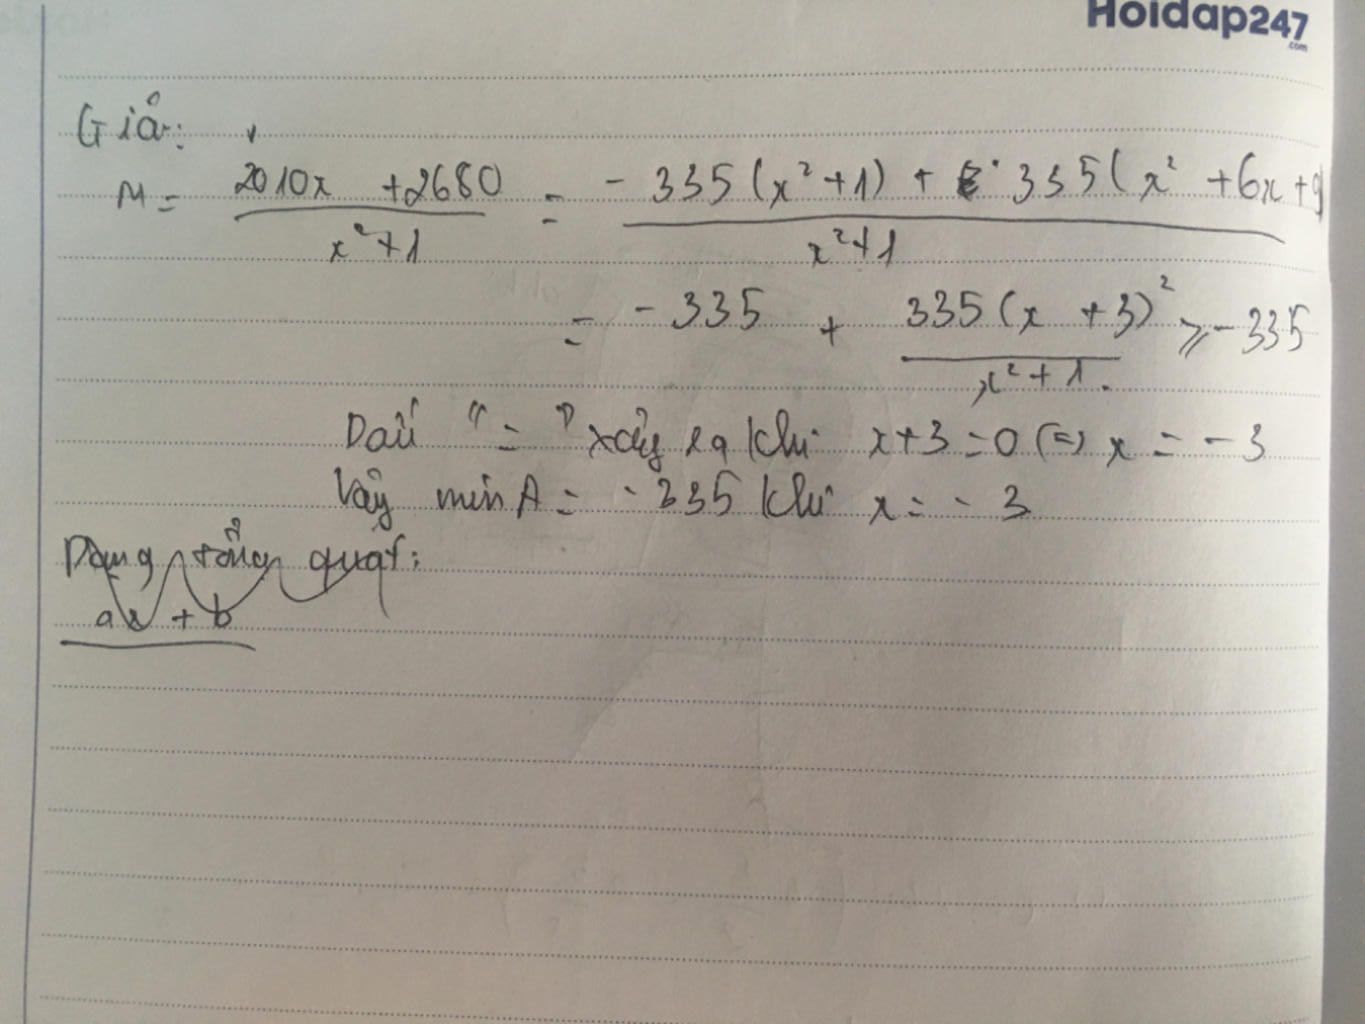 Hoidap247
.com
Giả:
M = 2010x + 2680 / x² + 1 = - 335 (x² + 1) + 335 (x² + 6x + 9 / x² + 1
= - 335 + 335 (x + 3)² / x² + 1 ⩾ - 335
Dấu "=" xảy ra khi x + 3 = 0 (=) x = - 3
Vậy min A = - 335 khi x = - 3
Dạng tổng quát:
ax + b